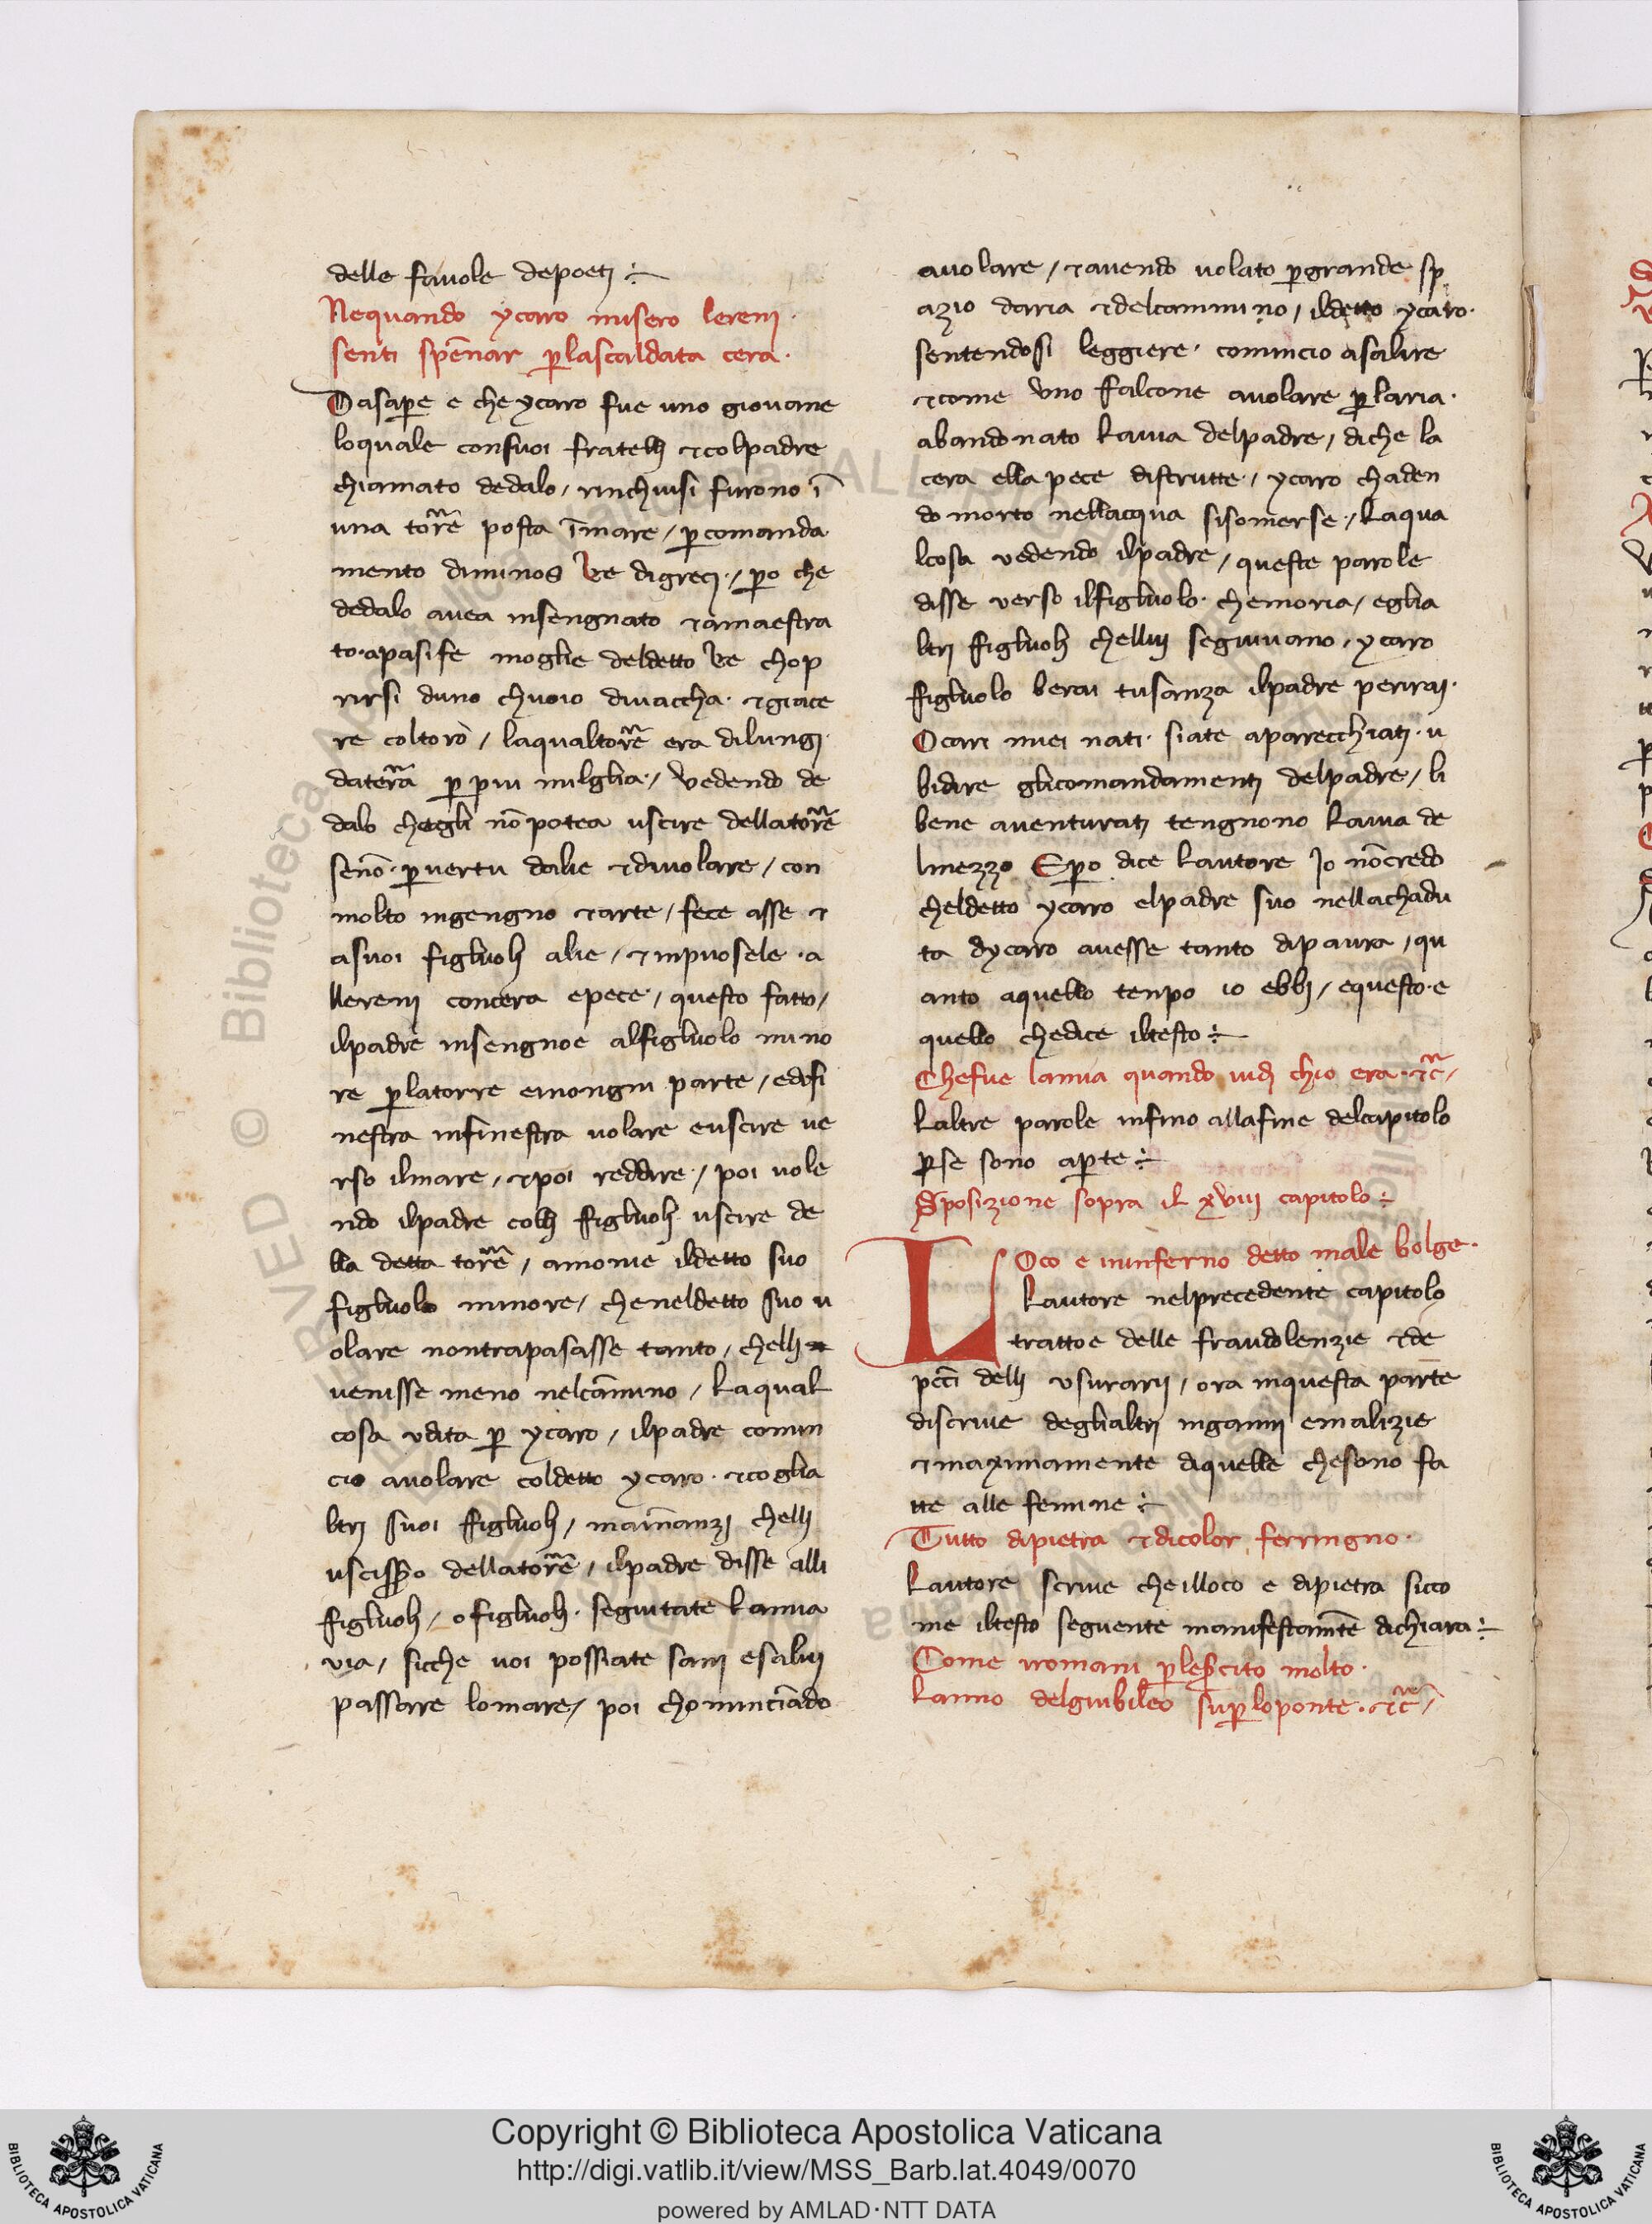 delle fauole depoetj ÷
Nequando ycaro misero lerenj·
sentì spēnar ꝑlascaldata cera·
Dasaꝑe e che ycaro fue uno giouane
loquale consuoi fratellj ⁊colpadre
chiamato dedalo / rinchiusi furono ī
una torrē posta īmare / ꝑcomanda
mento diminos Re digrecj· / ꝑo che
dedalo auea insengnato ⁊amaestra
to·apasife moglie deldetto Re chop
rirsi duno chuoio diuaccha· ⁊giace
re coltoro / laqualtorrē era dilungj·
daterra ꝑ piu milglia· / Vedendo de
dalo chegli nō potea uscire dellatorrē
senō· ꝑuertu dalie ⁊diuolare / con
molto ingengno ⁊arte / fece asse ⁊
asuoi figluolj alie / ⁊inpuosele ·a
llerenj concera epece· / questo fatto /
ilpadre insengnoe alfigluolo mino
re ꝑlatorre emongni parte / edifi
nestra infinestra uolare euscire ue
rso ilmare / ⁊poi reddire· / poi uole
ndo ilpadre collj figluolj uscire de
lla detta torrē / amonie ildetto suo
figluolo minore / cheneldetto suo u
olare nontrapasasse tanto / chelli
uenisse meno nelcāmino / Laqual
cosa udita ꝑ ycaro / ilpadre comin
cio auolare coldetto ycaro· ⁊coglia
ltrj suoi figluolj / mainanzj chelli
uscissero dellatorrē / ilpadre disse alli
figluolj / o figluolj· seguitate Lamia
via / sicche uoi possiate sanj esaluj
passare lomare / poi chominciādo
auolare / ⁊auendo uolato ꝑgrande sp
azio daria ⁊delcammino / ildetto ycaro·
sentendosi leggiere· comincio asalire
⁊come vno falcone auolare ꝑlaria·
abandonato Lauia delpadre / diche la
cera ella pece distrutte· / ycaro chaden
do morto nellacqua sisomerse· / Laqua
lcosa vedendo ilpadre / queste parole
disse verso ilfigluolo· chemoria / eglia
ltrj figluolj chelluj seguiuano / ycaro
figluolo berai tusanza ilpadre perirai·
Ocari miei nati· siate aparecchiatj· u
bidire glicomandamentj delpadre / li
bene auenturatj tengnono Lauia de
lmezzo Eꝑo dice Lautore Jo nōcredo
cheldetto ycaro elpadre suo nellachadu
ta dycaro auesse tanto dipaura / qu
anto aquello tenpo io ebbj / equesto·e
quello chedice iltesto ÷
Chefue lamia quando uidj chio era ·⁊c̄ /
Laltre parole infino allafine delcapitolo
ꝑse sono aꝑte ÷
Sposizione sopra il xviij capitolo ÷
LOco e ininferno detto male bolge·
Lautore nelprecedente capitolo
trattoe delle fraudolenzie ⁊de
pccī dellj usurarij / ora inquesta parte
discriue deglialtrj ingannj emalizie
⁊maximamente diquelle chesono fa
tte alle femine ÷
Tutto dipietra ⁊dicolor ferringno·
Lautore scriue cheilloco e dipietra sicco
me iltesto seguente manifestamēte dichiara ÷
Come iromani ꝑlesercito molto·
Lanno delgiubileo suꝑloponte· ⁊c̄ /
Copyright © Biblioteca Apostolica Vaticana
http://digi.vatlib.it/view/MSS_Barb.lat.4049/0070
powered by AMLAD·NTT DATA
BIBLIOTECA APOSTOLICA VATICANA
BIBLIOTECA APOSTOLICA VATICANA